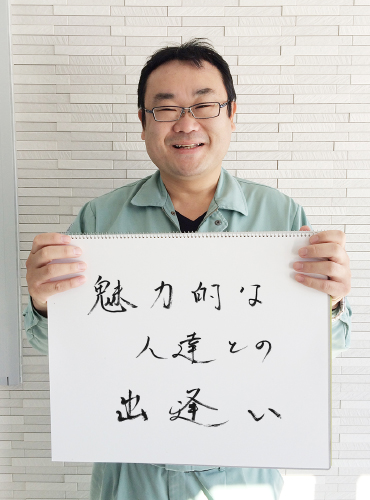 魅力的な
人達との
出逢い